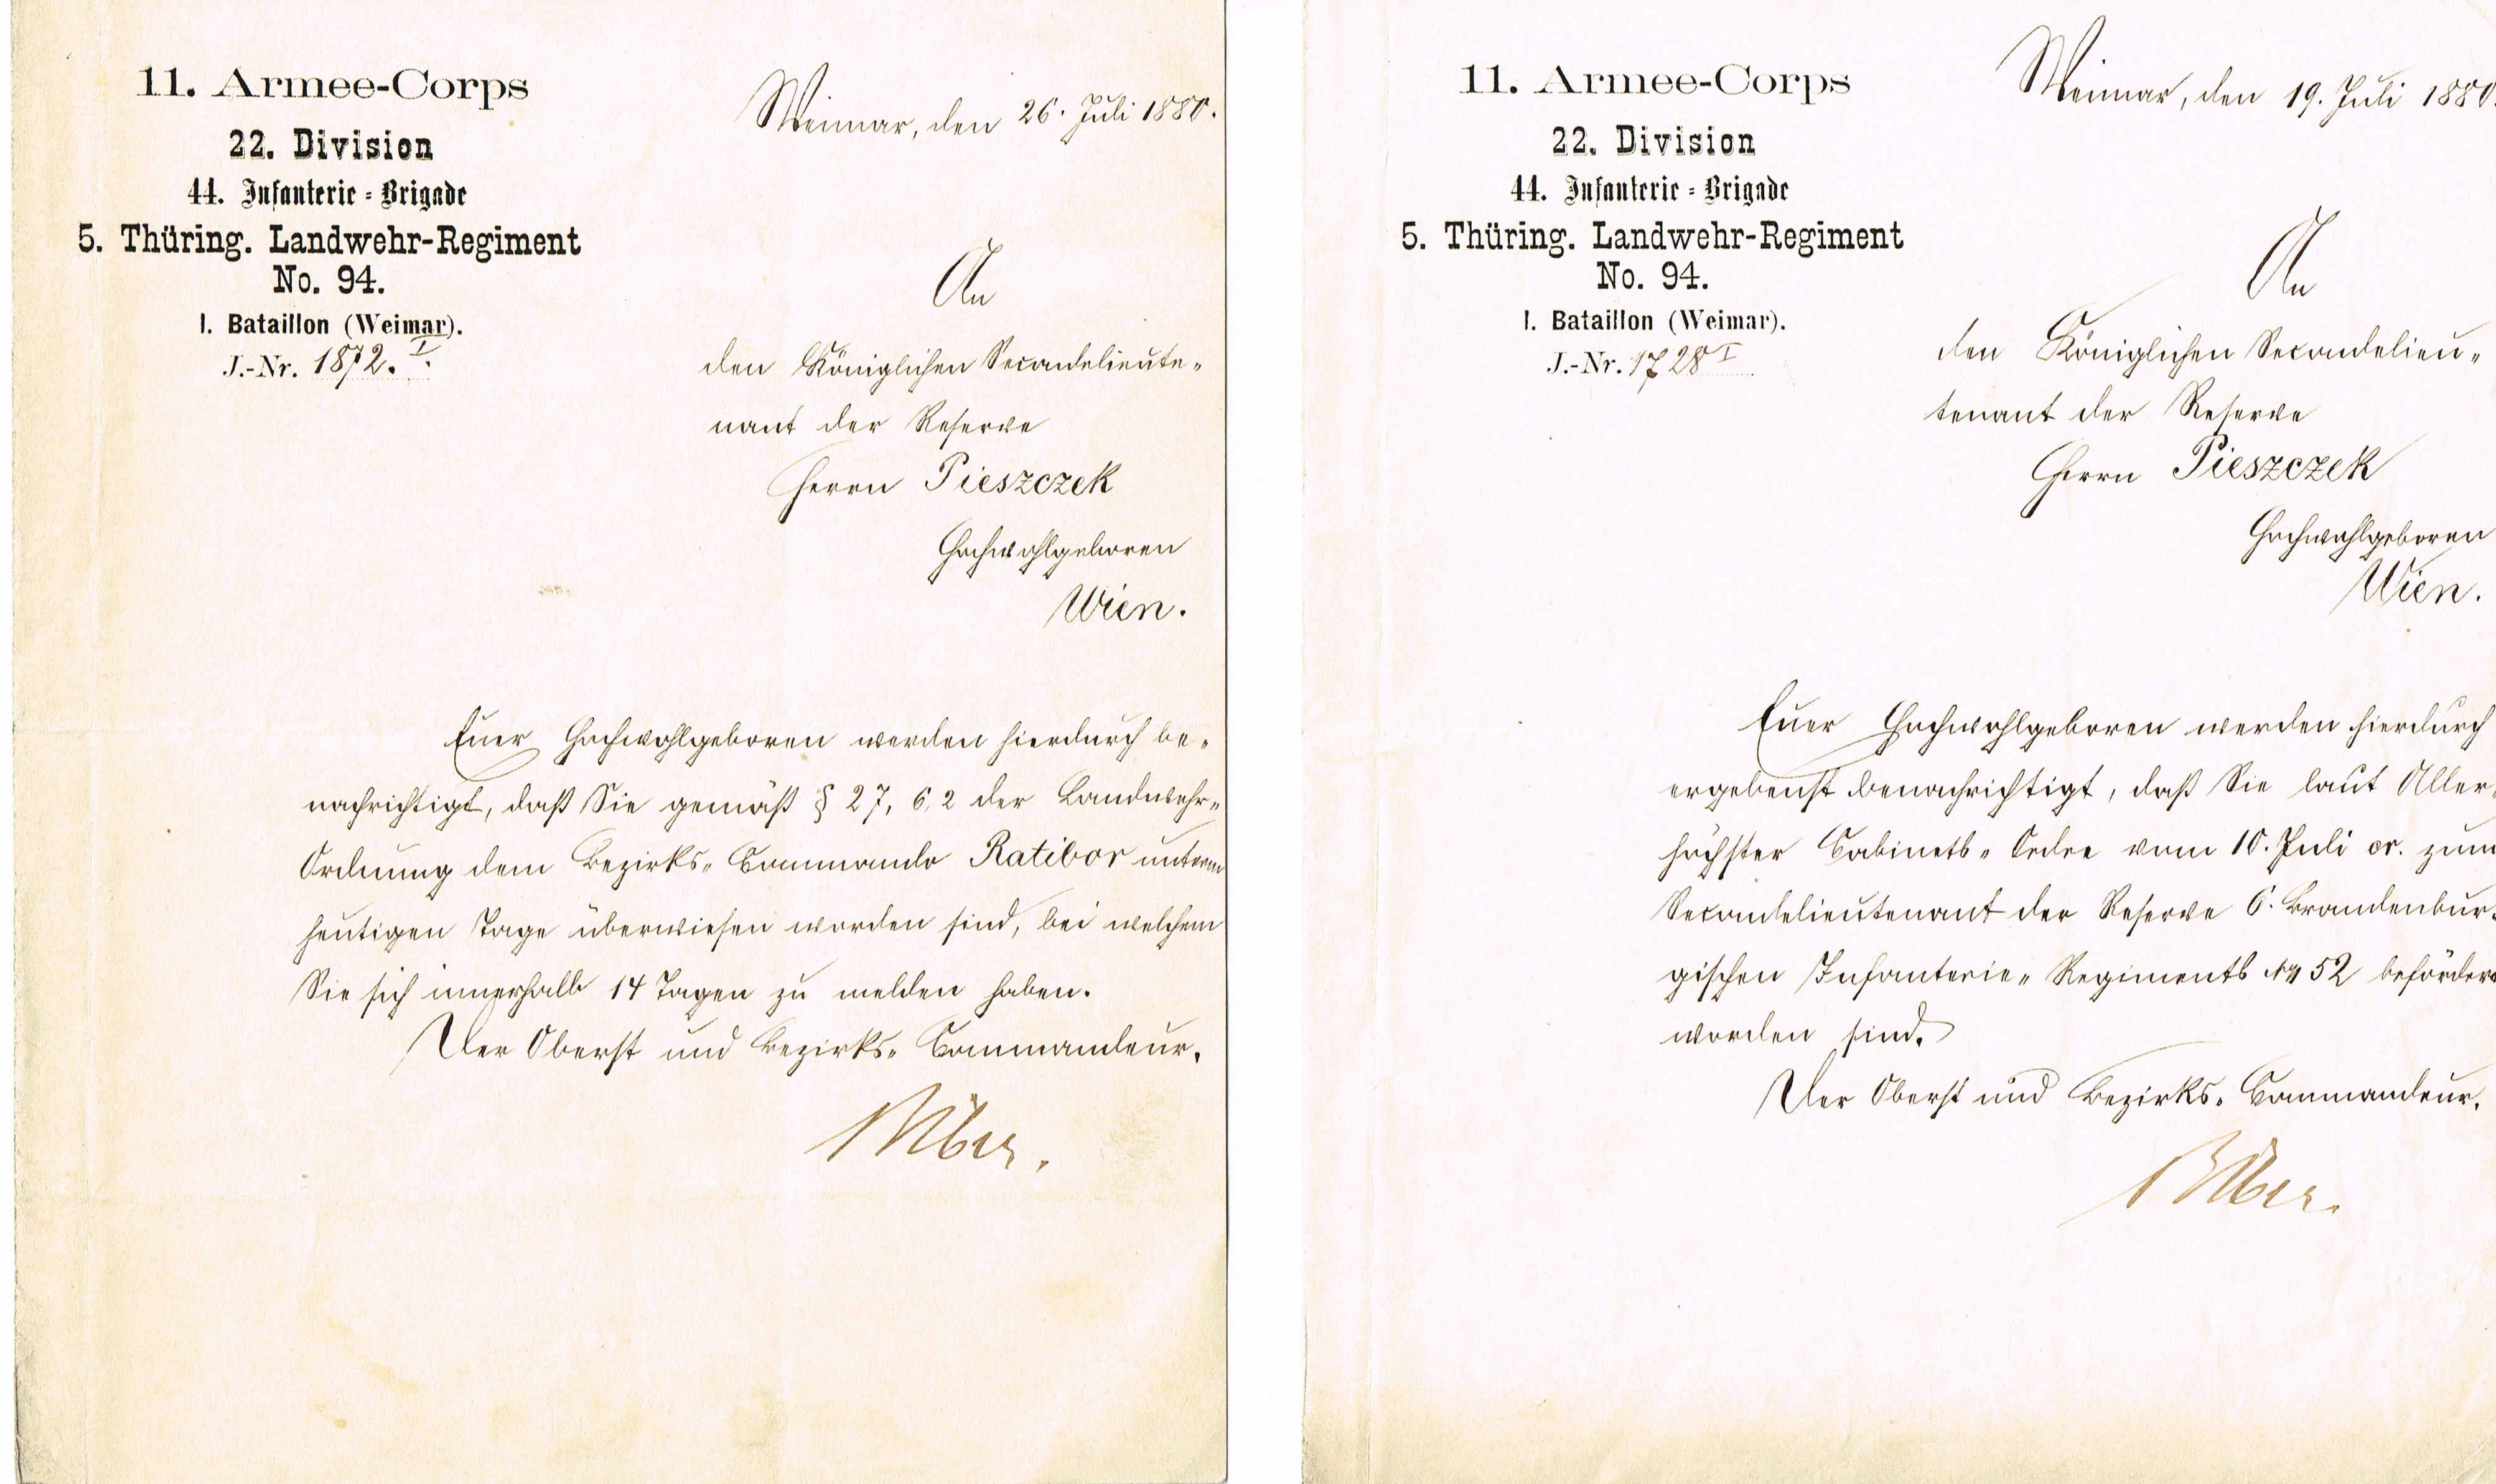 11. Armee-Corps
22. Division
44. Infanterie-Brigade
5. Thüring. Landwehr-Regiment
No. 94.
I. Bataillon (Weimar).
J.-Nr. 1872. I.
Weimar, den 26. Juli 1880.
An
den Königlichen Secondelieute-
nant der Reserve
Herrn Pieszczek
Hochwohlgeboren
Wien.
Euer Hochwohlgeboren werden hierdurch be-
nachrichtigt, daß Sie gemäß § 27, 6,2 der Landwehr-
Ordnung dem Bezirks-Commando Ratibor unterm
heutigen Tage überwiesen worden sind, bei welchem
Sie sich innerhalb 14 Tagen zu melden haben.
Der Oberst und Bezirks-Commandeur.
11. Armee-Corps
22. Division
44. Infanterie-Brigade
5. Thüring. Landwehr-Regiment
No. 94.
I. Bataillon (Weimar).
J.-Nr. 1728 I
Weimar, den 19. Juli 1880.
An
den Königlichen Secondelieu-
tenant der Reserve
Herrn Pieszczek
Hochwohlgeboren
Wien.
Euer Hochwohlgeboren werden hierdurch
ergebenst benachrichtigt, daß Sie laut Aller-
höchster Cabinets-Ordre vom 10. Juli cr. zum
Secondelieutenant der Reserve 6. Brandenbur-
gischen Infanterie-Regiments No 52 befördert
worden sind.
Der Oberst und Bezirks-Commandeur.